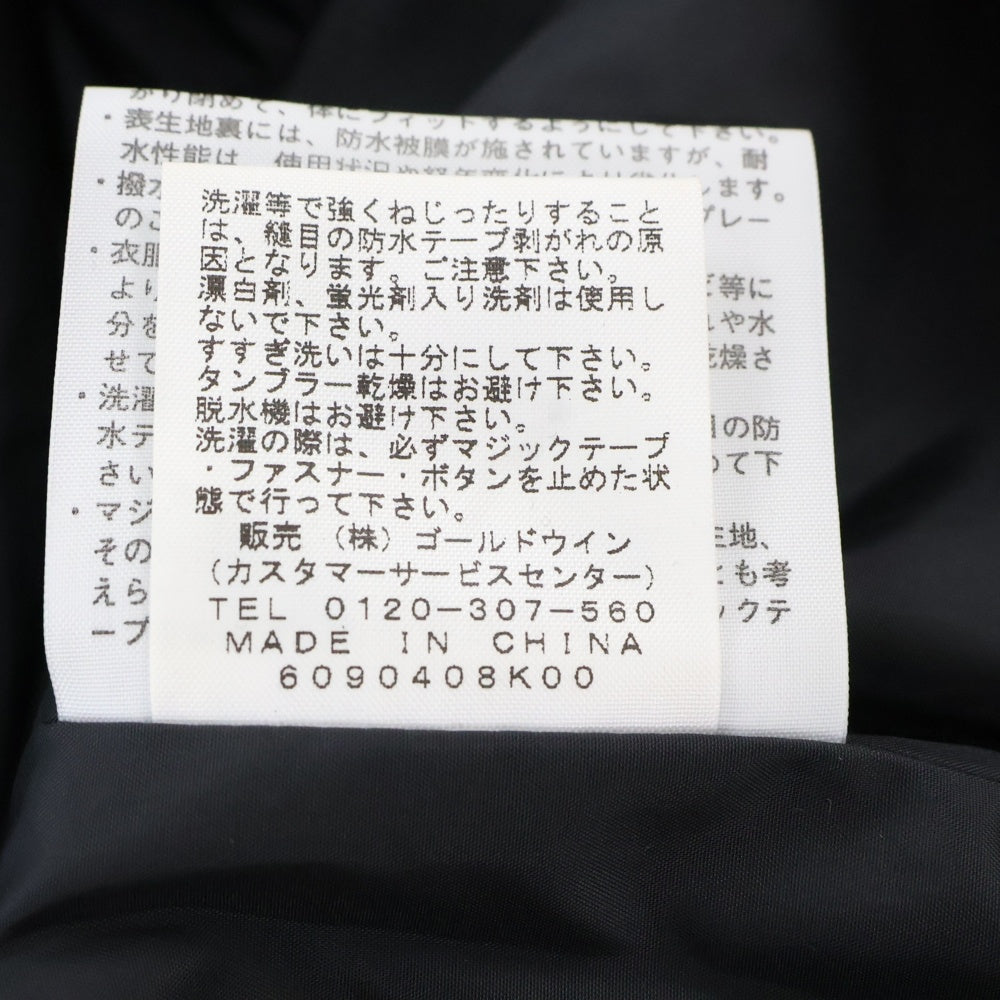 がり閉めて、体にフィットするようにして下さい。
・表生地裏には、防水被膜が施されていますが、耐
水性能は、使用状況や経年変化により劣化します。
・撥水
のこ
グレー
・衣服
より
等に
分を
や水
せて
乾燥さ
・洗濯
水テ
の防
さい
めて下
・マジ
その
生地、
えら
とも考
ックテ
ープ
洗濯等で強くねじったりすること
は、縫目の防水テープ剥がれの原
因となります。ご注意下さい。
漂白剤、蛍光剤入り洗剤は使用し
ないで下さい。
すすぎ洗いは十分にして下さい。
タンブラー乾燥はお避け下さい。
脱水機はお避け下さい。
洗濯の際は、必ずマジックテープ
・ファスナー・ボタンを止めた状
態で行って下さい。
販売 （株）ゴールドウイン
（カスタマーサービスセンター）
TEL 0120-307-560
MADE IN CHINA
6090408K00